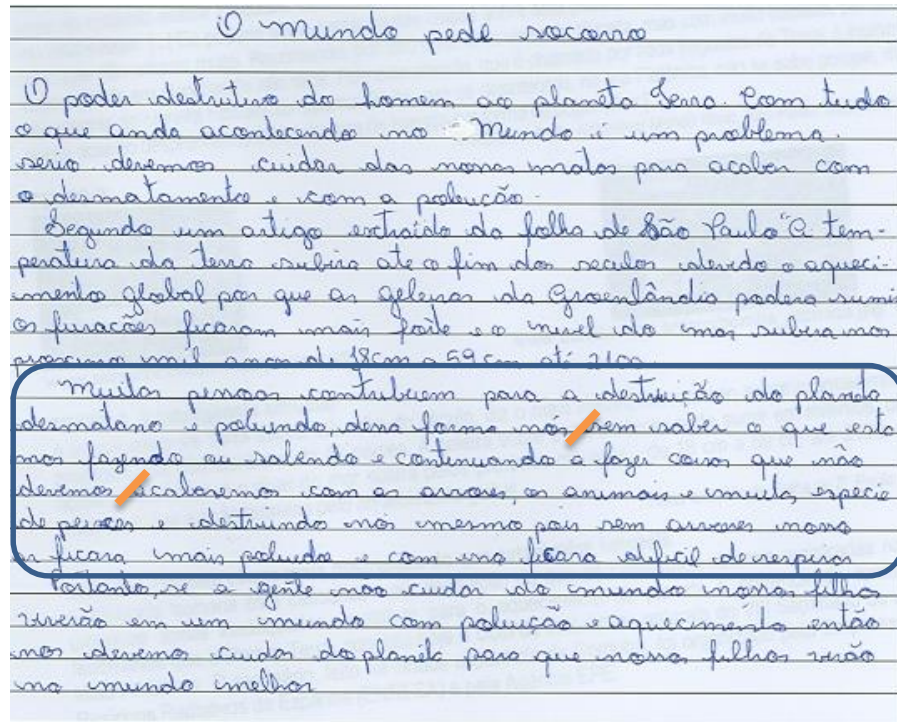 O mundo pede socorro
O poder destrutivo do homem ao planeta Terra. Com tudo
o que anda acontecendo no Mundo é um problema.
serio devemos cuidar das nossas matas para acabar com
o desmatamento e com a poluição.
Segundo um artigo extraído da folha de São Paulo "A tem-
peratura da terra subira ate o fim dos seculos devido o aqueci-
mento global por que as geleiras da Groenlândia podera sumi
os furacões ficaram mais forte e o nivel do mar subira nos
proximo mil anos de 18cm a 59cm até 2100.
Muitas pessoas contribuem para a destruição do planeta
desmatano e poluindo, dessa forma nos sem saber o que esta
mos fazendo ou sabendo e continuando a fazer coisas que não
devemos acabaremos com as arvores, os animais e muitas especie
de peixes e destruindo nós mesmo pois sem arvores nosso
ar ficara mais poluedo e com isso ficara dificil de respirar
Portanto, se a gente não cuidar do mundo nossos filhos
viverão em um mundo com poluição e aquecimento então
nos devemos cuidar do planeta para que nossos filhos virão
no mundo melhor